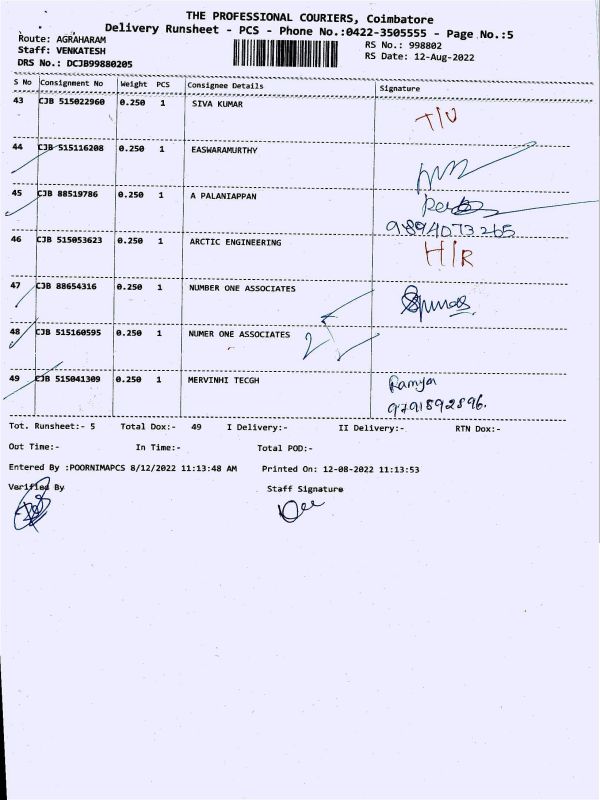 THE PROFESSIONAL COURIERS, Coimbatore
Delivery Runsheet - PCS - Phone No.:0422-3505555 - Page No.:5
Route: AGRAHARAM
RS No.: 998802
Staff: VENKATESH
RS Date: 12-Aug-2022
DRS No.: DCJB99880205
S No Consignment No Weight PCS Consignee Details Signature
43 CJB 515022960 0.250 1 SIVA KUMAR T/U
44 CJB 515116208 0.250 1 EASWARAMURTHY
45 CJB 88519786 0.250 1 A PALANIAPPAN
9894073265
46 CJB 515053623 0.250 1 ARCTIC ENGINEERING H/R
47 CJB 88654316 0.250 1 NUMBER ONE ASSOCIATES
48 CJB 515160595 0.250 1 NUMER ONE ASSOCIATES
49 CJB 515041309 0.250 1 MERVINHI TECGH Ramya
9791892896.
Tot. Runsheet:- 5 Total Dox:- 49 I Delivery:- II Delivery:- RTN Dox:-
Out Time:- In Time:- Total POD:-
Entered By :POORNIMAPCS 8/12/2022 11:13:48 AM Printed On: 12-08-2022 11:13:53
Verified By Staff Signature